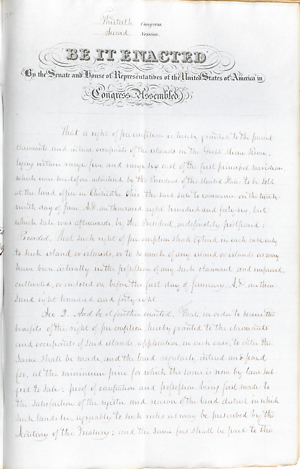 Thirtieth Congress
Second Session
BE IT ENACTED
By the Senate and House of Representatives of the United States of America in
Congress Assembled,
That a right of pre-emption is hereby granted to the present
claimants and actual occupants of the islands in the Great Miami River,
lying within range five and range six east of the first principal meridian
which were heretofore advertised by the President of the United States to be sold
at the land office in Chillicothe, Ohio the said sale to commence on the twenty
ninth day of June, A.D. one thousand eight hundred and forty six, but
which sale was afterwards by the President indefinitely postponed:
Provided, That such right of pre-emption shall extend in each case only
to such island or islands, or to so much of any island or islands as may
have been actually in the possession of any such claimant and improved
cultivated, or resided on before the first day of January, A.D. one thou-
sand eight hundred and forty eight.
Sec 2. And be it further enacted, That in order to secure the
benefits of the right of pre-emption, hereby granted to the claimants
and occupants of said islands application, in each case, to enter the
same shall be made, and the land regularly entered and paid
for, at the minimum price for which the same is now by law sub-
ject to sale; proof of occupation and possession being first made to
the satisfaction of the register and receiver of the land district in which
such lands lie, agreeably to such rules as may be prescribed by the
Secretary of the Treasury; and the same fees shall be paid to the